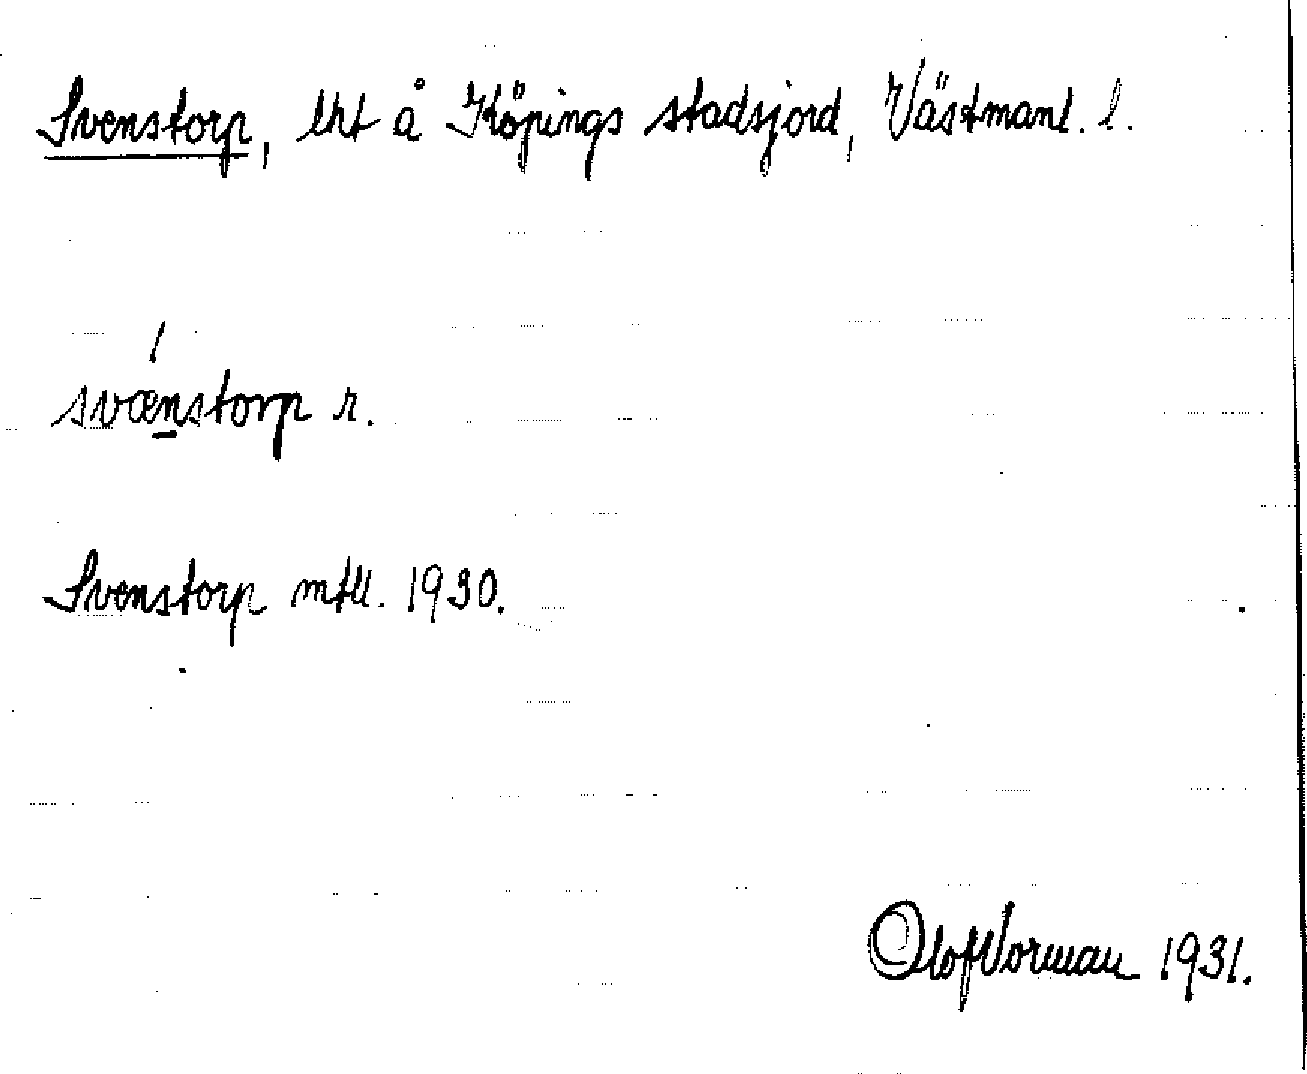 Svenstorp, lht å Köpings stadsjord, Västmanl. l.
svænstorp r.
Svenstorp mtll. 1930.
Olof Norman 1931.